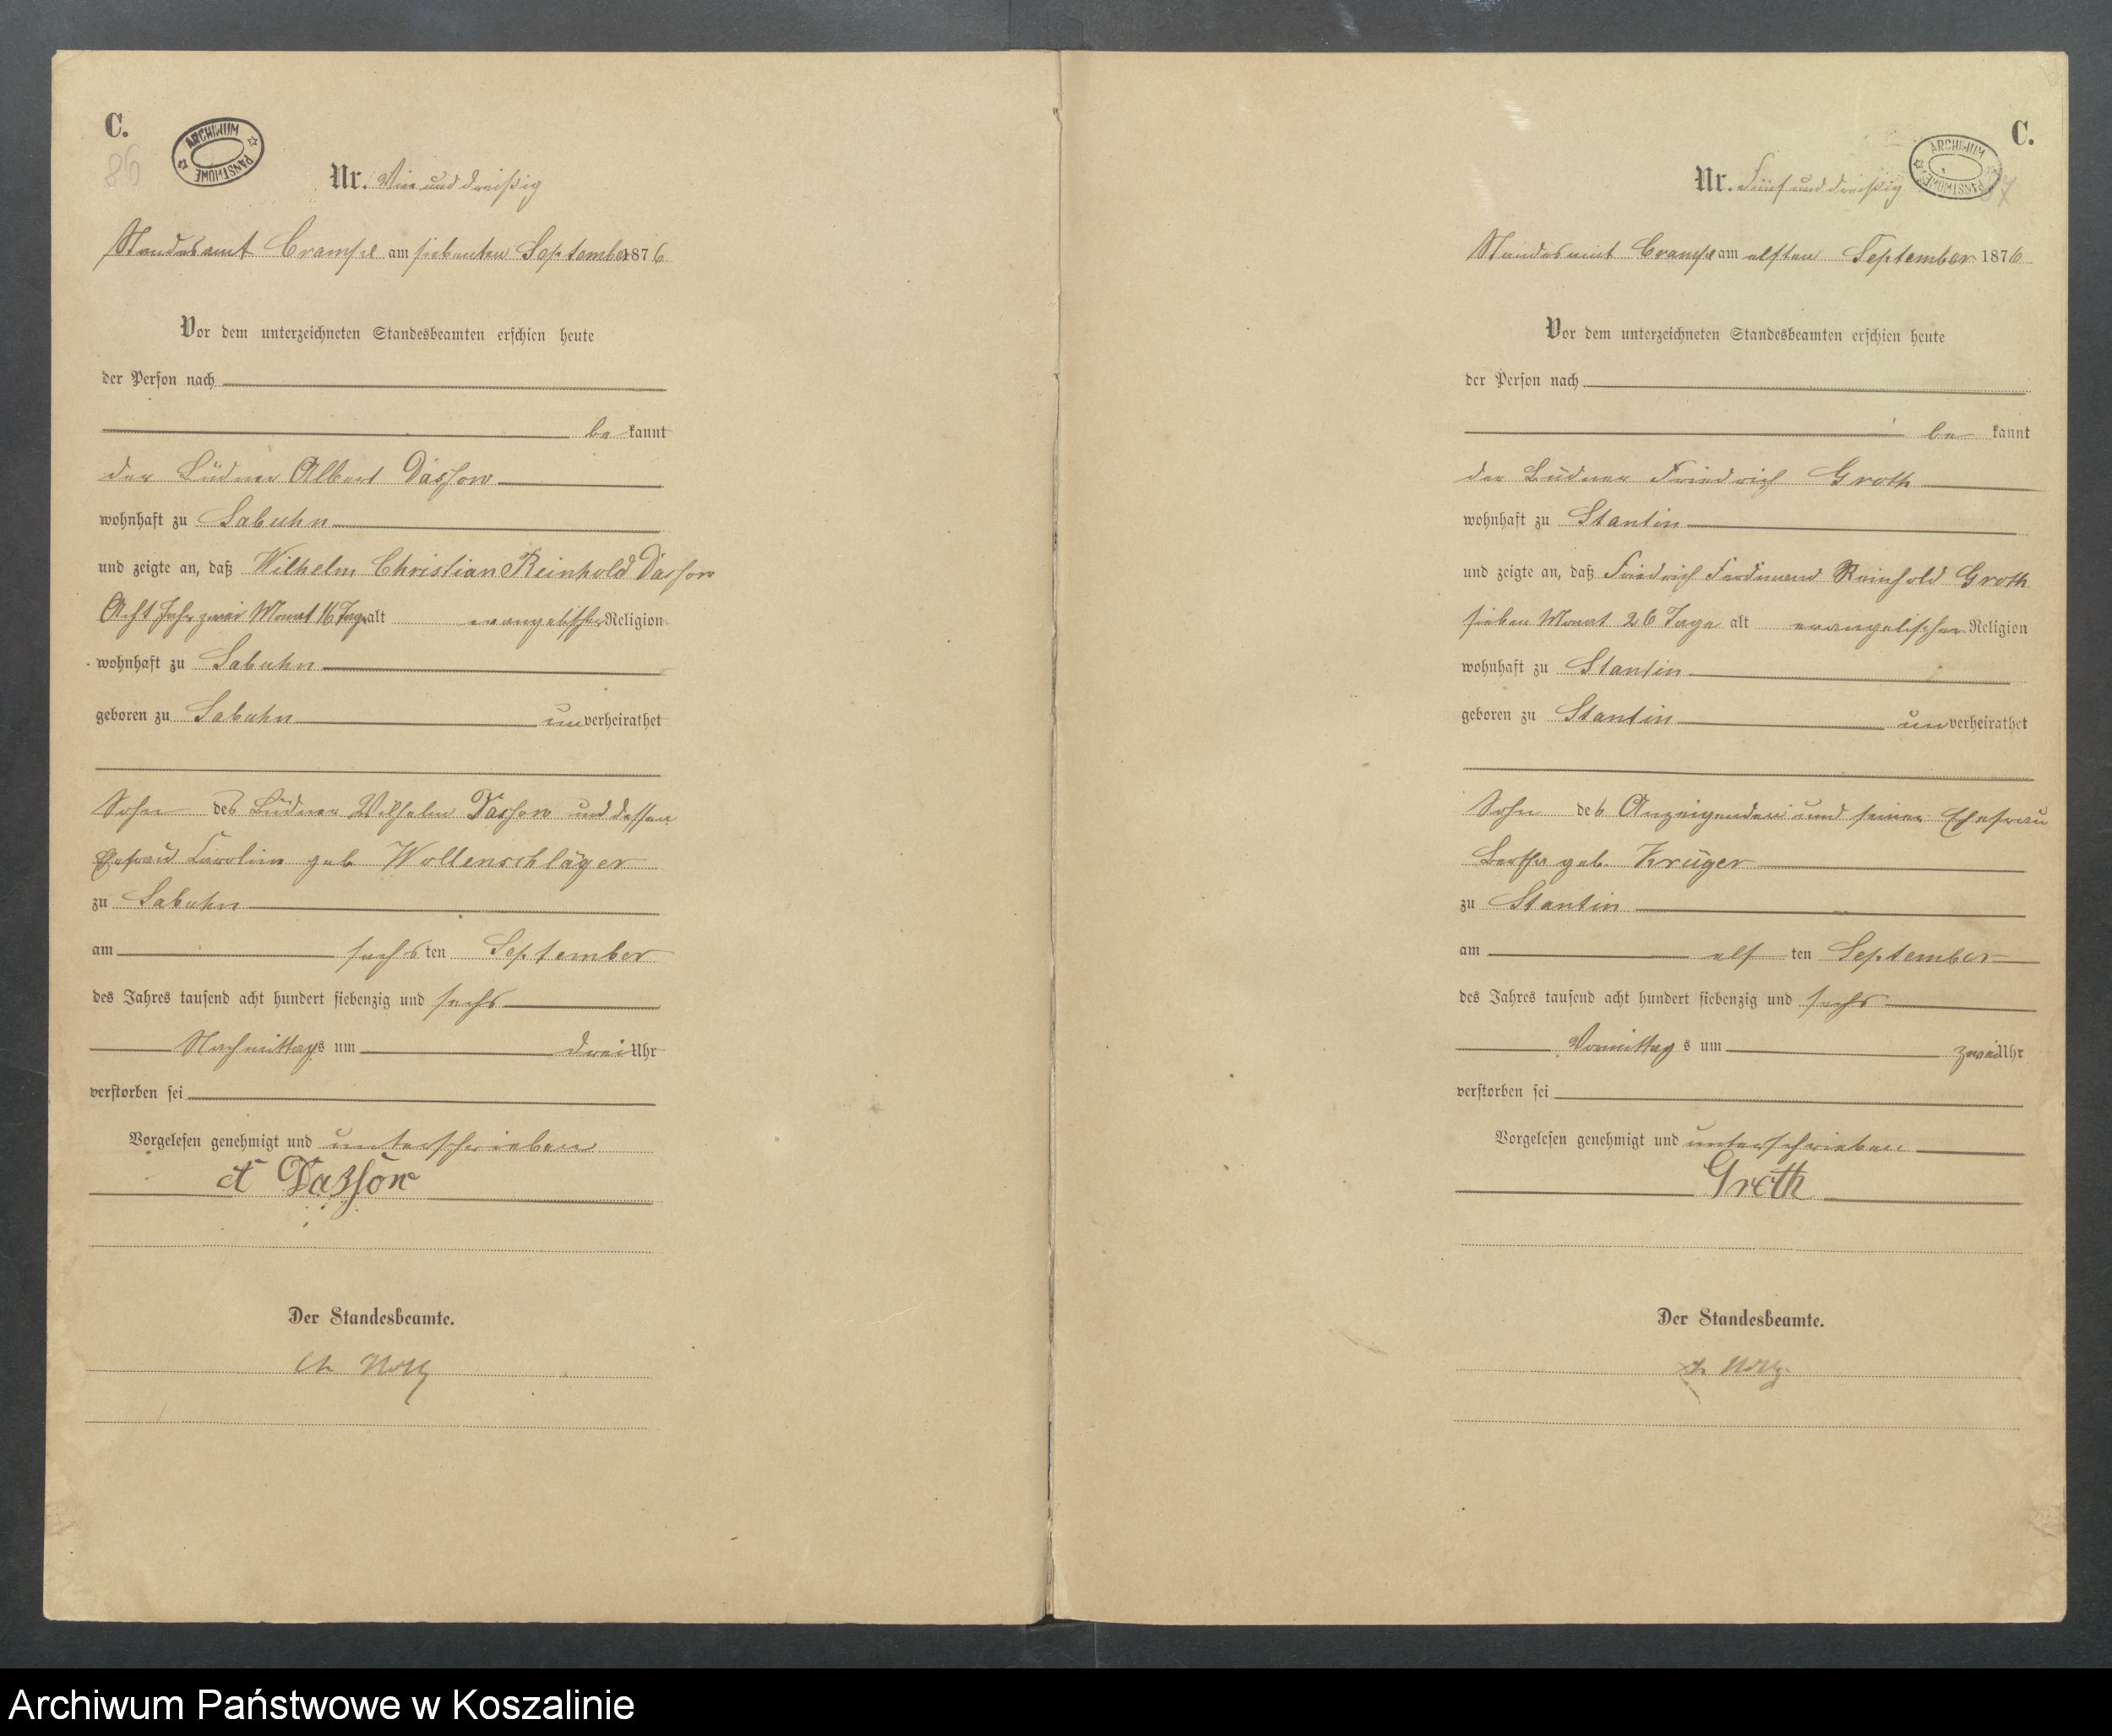 C.
86
ARCHIWUM PAŃSTWOWE
Nr. Vier und dreißig
Standesamt Crampe am siebenten September 1876
Vor dem unterzeichneten Standesbeamten erschien heute
der Person nach
be kannt
der Büdner Albert Dassow
wohnhaft zu Labuhn
und zeigte an, daß Wilhelm Christian Reinhold Dassow
Acht Jahr zwei Monat 16 Tage alt evangelischer Religion
wohnhaft zu Labuhn
geboren zu Labuhn unverheirathet
Sohn des Büdner Wilhelm Dassow und dessen
Ehefrau Carolin geb Wollenschläger
zu Labuhn
am sechsten September
des Jahres tausend acht hundert siebenzig und sechs
Nachmittags um drei Uhr
verstorben sei
Vorgelesen genehmigt und unterschrieben
A Dassow
Der Standesbeamte.
C.
ARCHIWUM PAŃSTWOWE
87
Nr. Fünf und dreißig
Standesamt Crampe am elften September 1876
Vor dem unterzeichneten Standesbeamten erschien heute
der Person nach
be kannt
der Büdner Friedrich Groth
wohnhaft zu Stantin
und zeigte an, daß Friedrich Ferdinand Reinhold Groth
sieben Monat 26 Tage alt evangelischer Religion
wohnhaft zu Stantin
geboren zu Stantin unverheirathet
Sohn des Anzeigenden und seiner Ehefrau
Bertha geb. Krüger
zu Stantin
am elf ten September
des Jahres tausend acht hundert siebenzig und sechs
Vormittag s um zwei Uhr
verstorben sei
Vorgelesen genehmigt und unterschrieben
Groth
Der Standesbeamte.
Archiwum Państwowe w Koszalinie